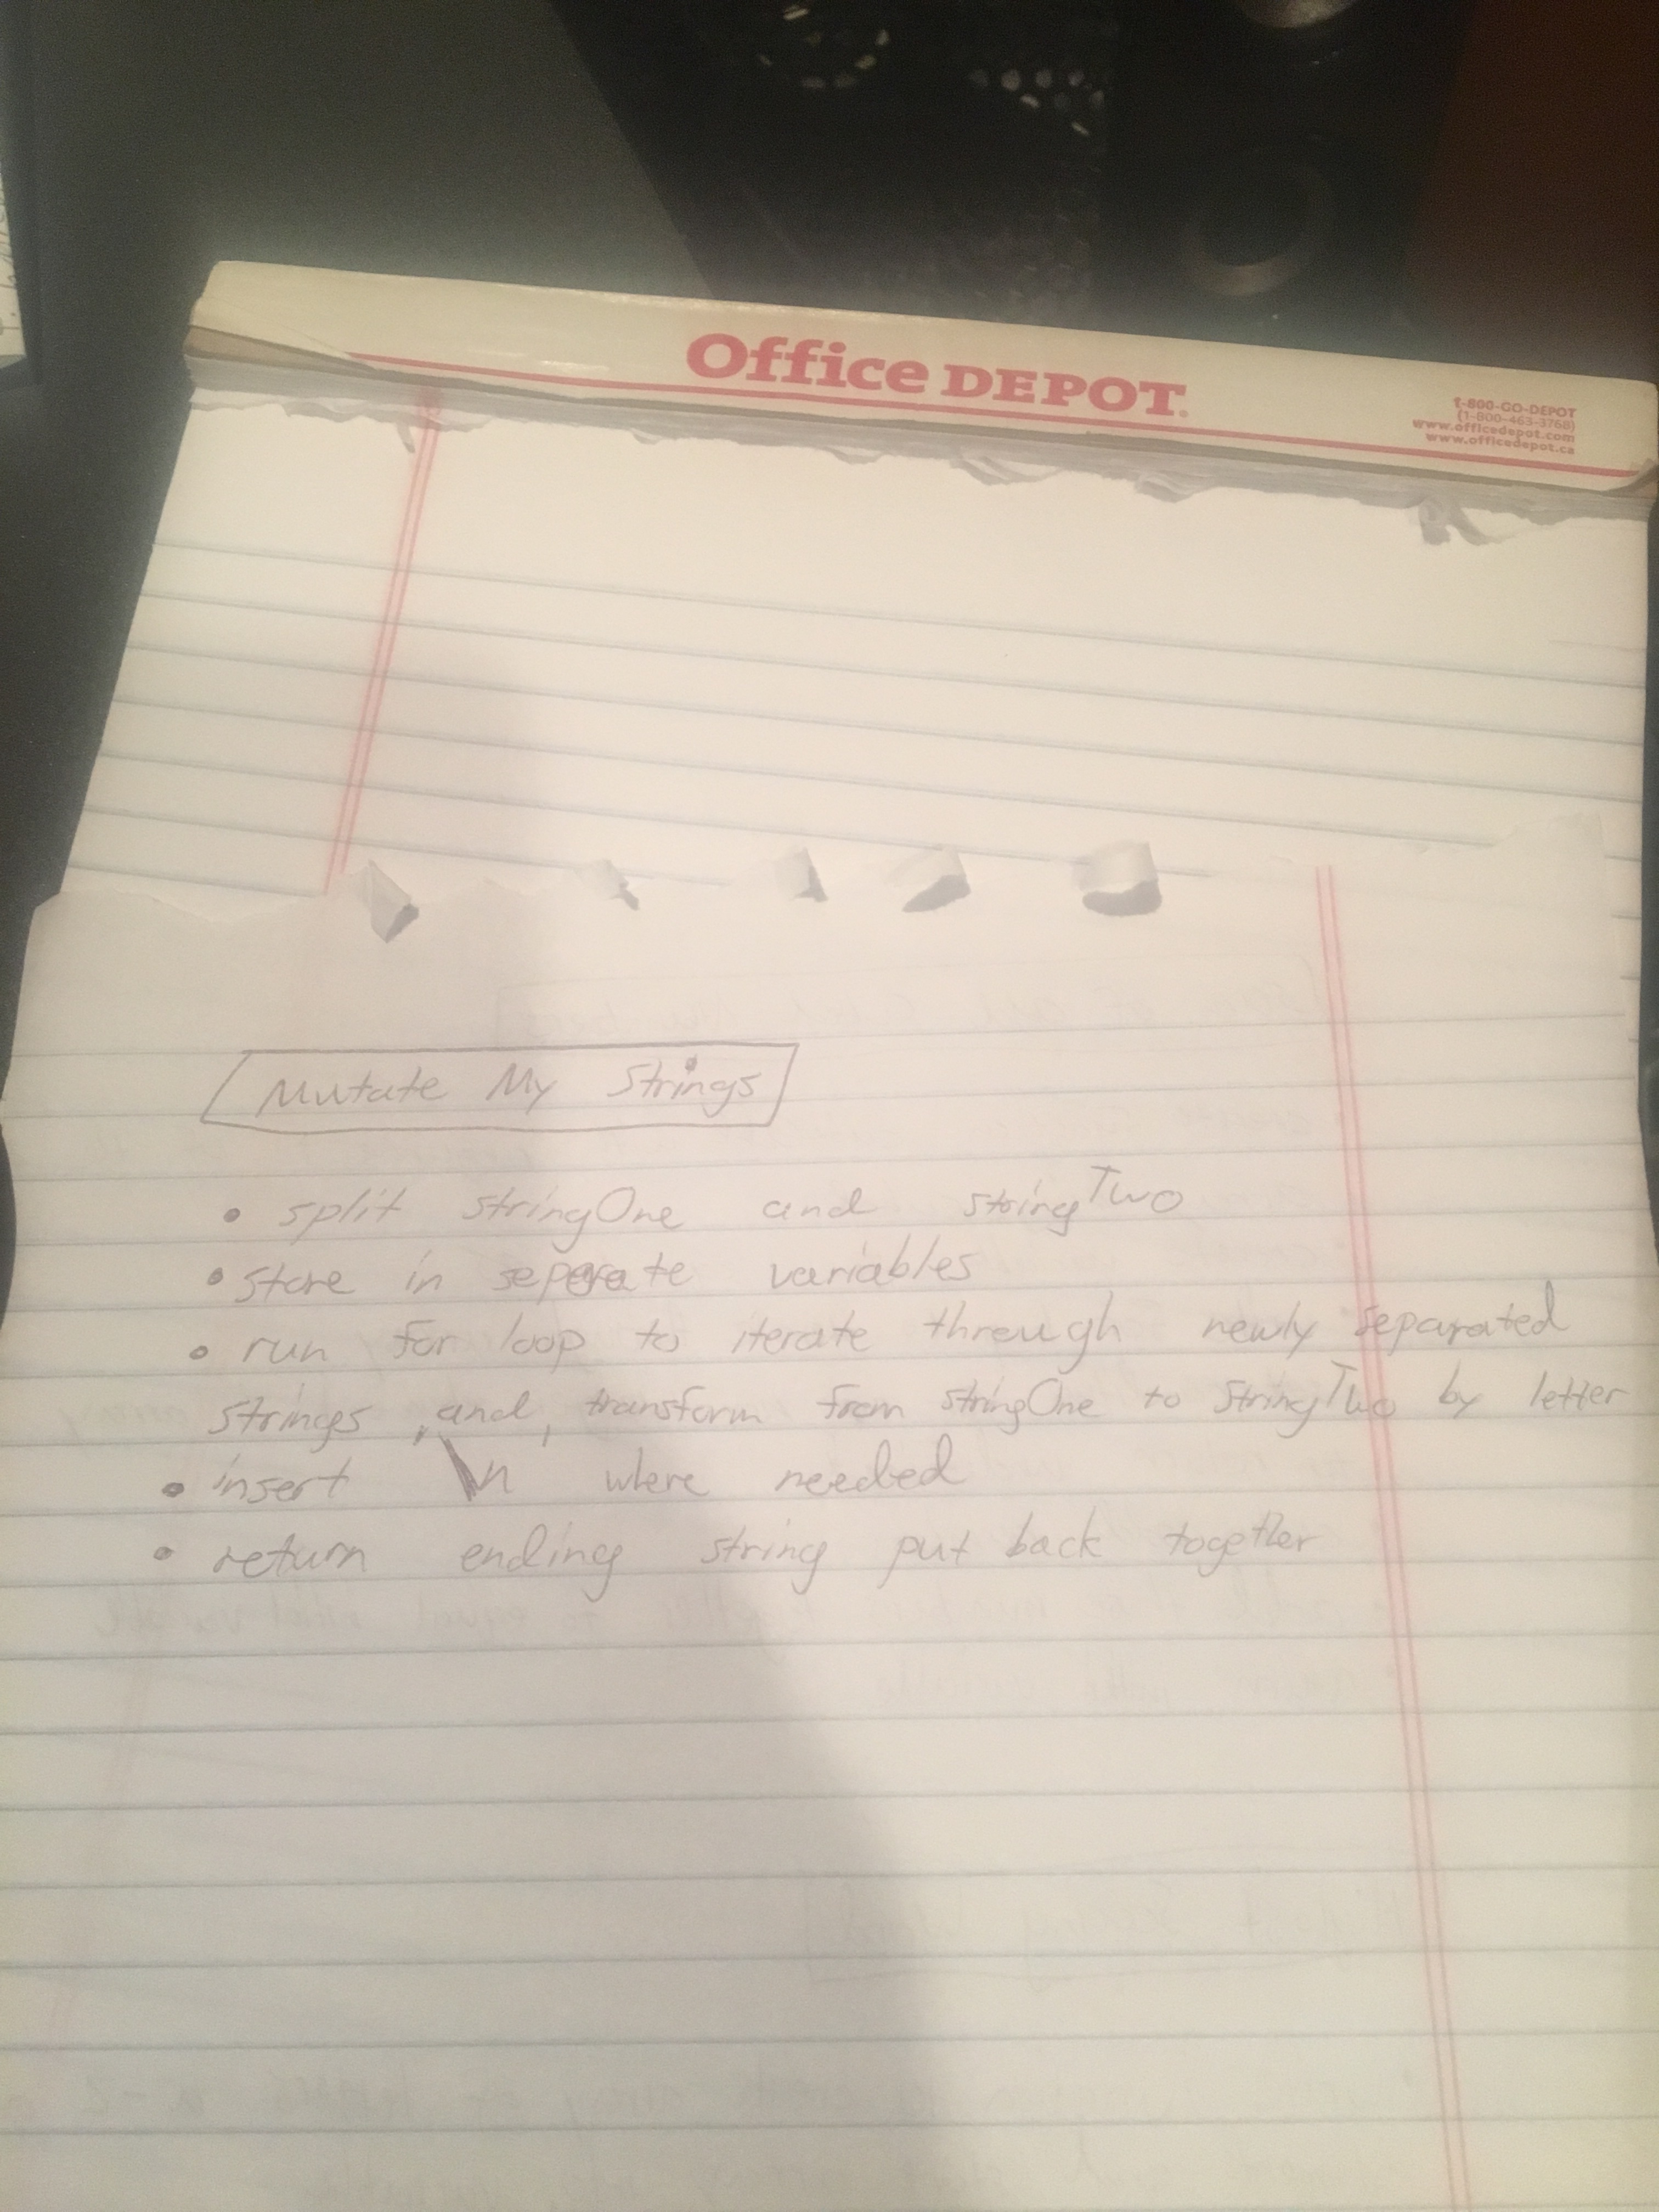 Office DEPOT.
1-800-GO-DEPOT
(1-800-463-3768)
www.officedepot.com
www.officedepot.ca
Mutate My Strings
• split stringOne and stringTwo
• store in seperate variables
• run for loop to iterate through newly separated
strings, and, transform from stringOne to stringTwo by letter
• insert \n where needed
• return ending string put back together